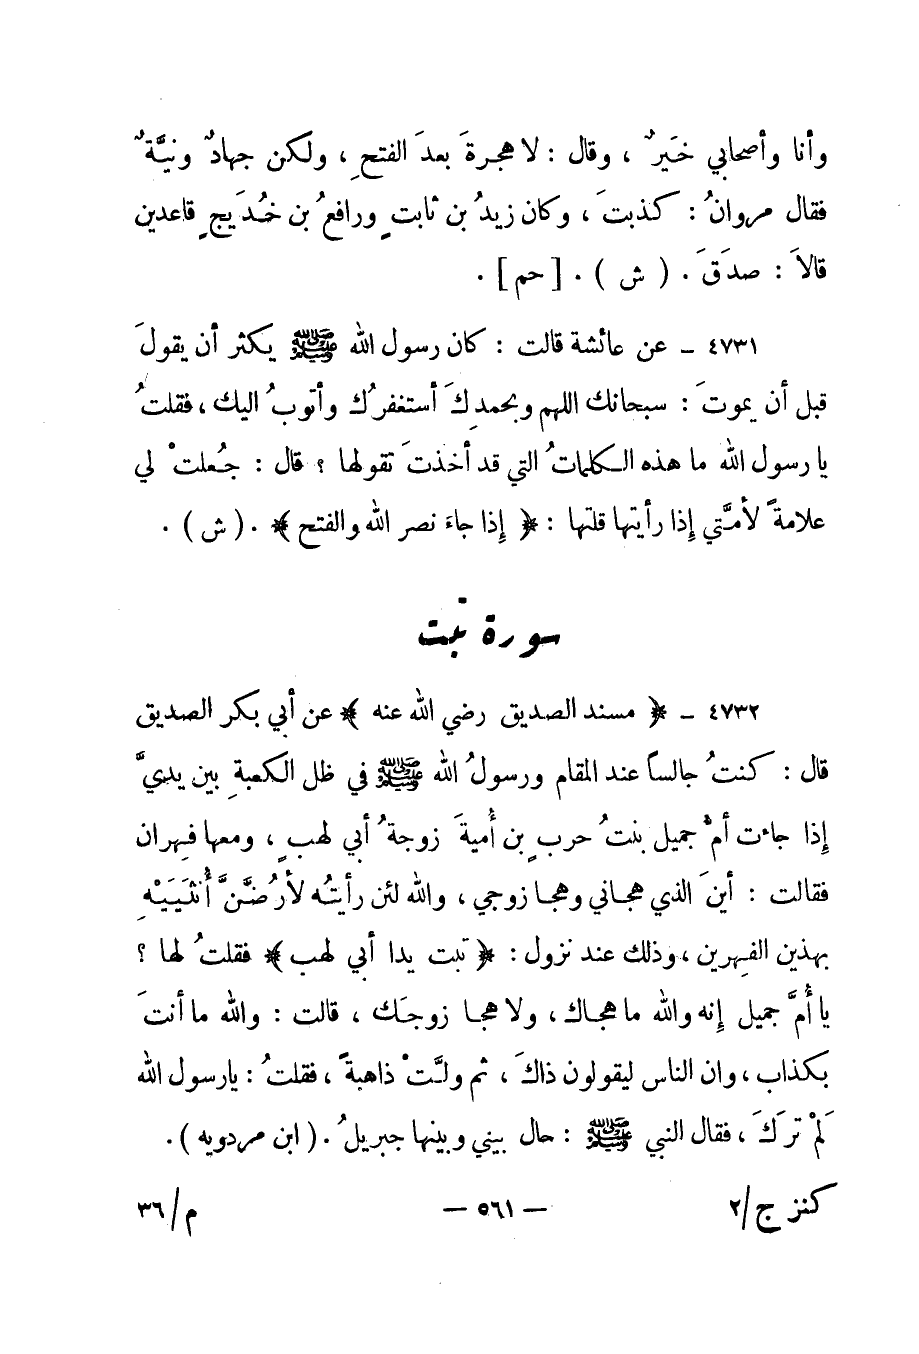 وأنا وأصحابي خَيرٌ ، وقال : لا هجرةَ بعدَ الفتحِ ، ولكن جهادٌ ونيَّةٌ
فقال مروانُ : كذبتَ ، وكان زيدُ بن ثابتٍ ورافعُ بن خُدَيجٍ قاعدين
قالاَ : صدَقَ . ( ش ) . [ حم ] .
٤٧٣١ - عن عائشة قالت : كان رسول الله ﷺ يكثر أن يقولَ
قبل أن يموتَ : سبحانك اللهم وبحمدِكَ أستغفرُك وأتوبُ اليك ، فقلتُ
يا رسول الله ما هذه الكلماتُ التي قد أخذتَ تقولها ؟ قال : جُعلتْ لي
علامةً لأمَّتي إذا رأيتها قلتها : ﴿ إذا جاءَ نصر الله والفتح ﴾ . ( ش ) .
سورة تبت
٤٧٣٢ - ﴿ مسند الصديق رضي الله عنه ﴾ عن أبي بكر الصديق
قال : كنتُ جالساً عند المقام ورسولُ الله ﷺ في ظل الكعبةِ بين يديَّ
إذا جاءت أمُّ جميل بنتُ حربٍ بن أُميةَ زوجةُ أبي لهبٍ ، ومعها فهران
فقالت : أينَ الذي هجاني وهجا زوجي ، والله لئن رأيتُه لأرُضَّنَّ أُنثَيَيْهِ
بهذين الفهرين ، وذلك عند نزول : ﴿ تبت يدا أبي لهب ﴾ فقلتُ لها ؟
يا أُمَّ جميل إنه والله ما هجاك ، ولا هجا زوجَك ، قالت : والله ما أنتَ
بكذاب ، وان الناس ليقولون ذاكَ ، ثم ولَّتْ ذاهبةً ، فقلتُ : يارسول الله
لَمْ تَرَكَ ، فقال النبي ﷺ : حال بيني وبينها جبريلُ . ( ابن مردويه ) .
كنز ج/٢ — ٥٦١ — م/٣٦